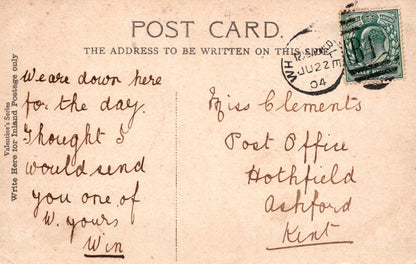 POST CARD.
THE ADDRESS TO BE WRITTEN ON THIS SIDE.
Valentine's Series
Write Here for Inland Postage only
We are down here
for the day.
Thought I
would send
you one of
W. yours
Win
JU 22
04
Miss Clements
Post Office
Hothfield
Ashford
Kent